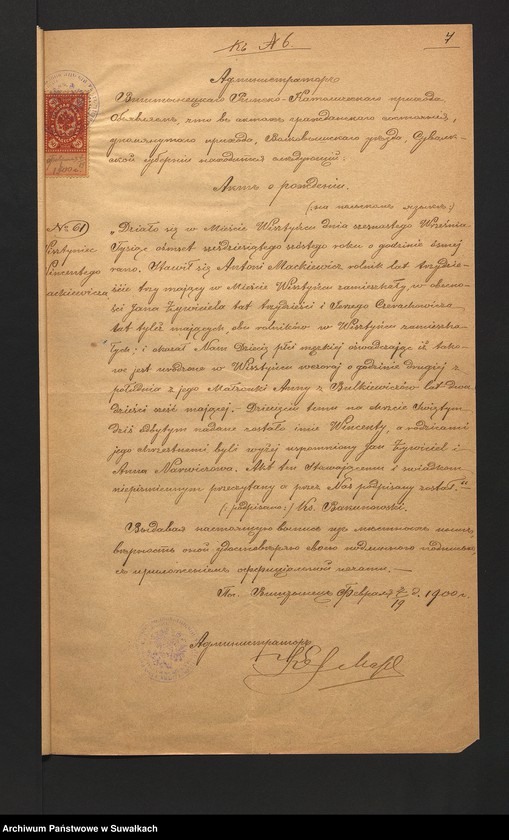 Къ № 6.
7
Администраторъ
Виштынецкаго Римско-Католическаго прихода
объявляетъ, что въ актахъ гражданскаго состоянія,
упомянутаго прихода, Волковышскаго уѣзда, Сувалк-
ской губерніи находится слѣдующій:
Актъ о рожденіи.
(:на польскомъ языкѣ:)
№ 61
Wisztyniec
Wincentego
Mackiewicza
„Działo się w Mieście Wisztyńcu dnia szesnastego Września
Tysiąc ośmset sześdziesiątego szóstego roku o godzinie ósmej
rano. Stawił się Antoni Mackiewicz rolnik lat trzydzie-
ście trzy mający w Mieście Wisztyńcu zamieszkały, w obecno-
ści Jana Żywiciela lat trzydzieści i Jerzego
lat tyleż mających, obu rolników w Wisztyńcu zamieszka-
łych; i okazał Nam Dziecię płci męzkiej oświadczając iż tako-
we jest urodzone w Wisztyńcu wczoraj o godzinie drugiej z
południa z jego Małżonki Anny z Butkiewiczów lat dwa-
dzieścia sześć mającej.— Dziecięciu temu na Chrzcie Świętym
dziś odbytym nadane zostało imie Wincenty, a rodzicami
jego chrzestnemi byli wyżej wspomniony Jan Żywiciel i
Anna. Akt ten Stawającemu i świadkom
niepiśmiennym przeczytany a przez Nas podpisany został.“—
(:podpisano:) Ks.
Выдавая настоящую
вѣрность оной удостовѣряю своею подписью
съ приложеніемъ оффиціальной печати.—
Пос. Виштынецъ Февраля 7/19 д. 1900 г.
Администраторъ
Архiwum Państwowe w Suwałkach